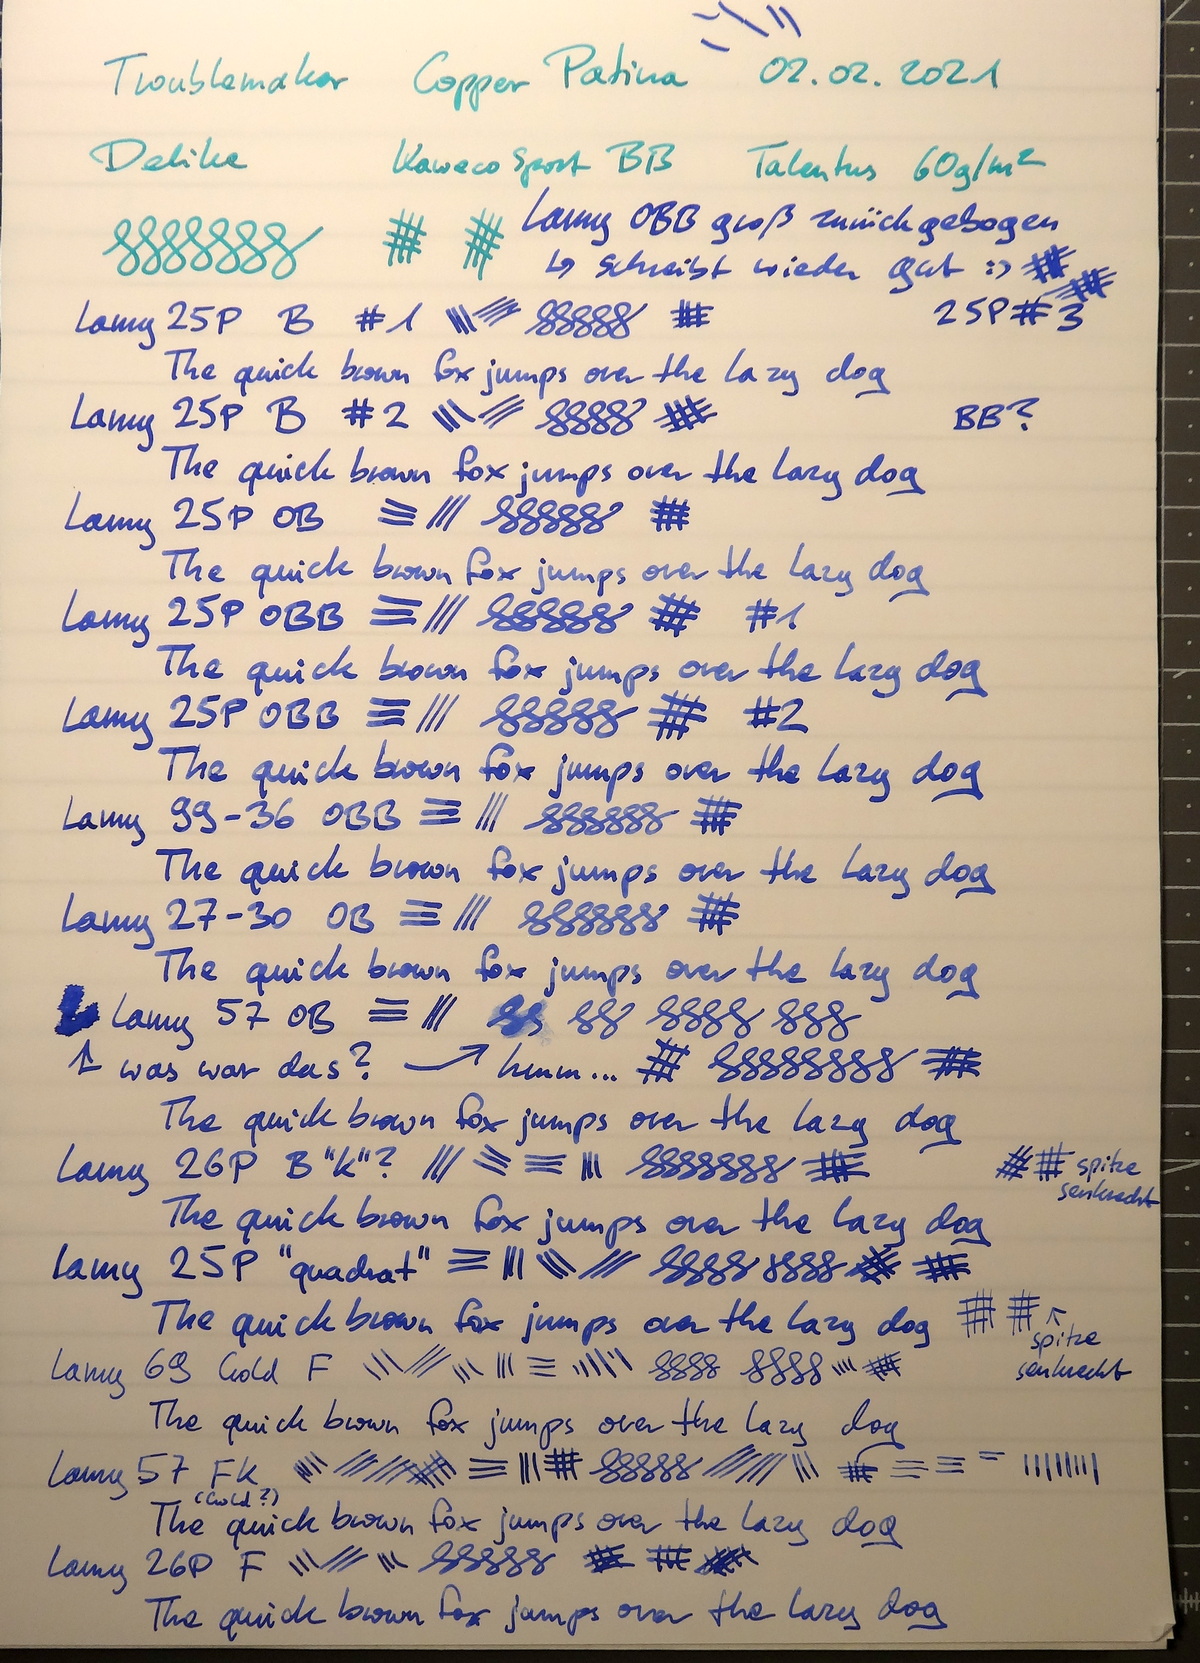 Troublemaker Copper Patina 02.02.2021
Delike Kaweco Sport BB Talentus 60g/m²
Lamy OBB groß zurückgebogen
↳ schreibt wieder gut :-)
Lamy 25P B #1 25P#3
The quick brown fox jumps over the lazy dog
Lamy 25P B #2 BB?
The quick brown fox jumps over the lazy dog
Lamy 25P OB
The quick brown fox jumps over the lazy dog
Lamy 25P OBB #1
The quick brown fox jumps over the lazy dog
Lamy 25P OBB #2
The quick brown fox jumps over the lazy dog
Lamy 99-36 OBB
The quick brown fox jumps over the lazy dog
Lamy 27-30 OB
The quick brown fox jumps over the lazy dog
Lamy 57 OB
↑ was war das? → hmm...
The quick brown fox jumps over the lazy dog
Lamy 26P B "k"? spitze
senkrecht
The quick brown fox jumps over the lazy dog
Lamy 25P "quadrat"
The quick brown fox jumps over the lazy dog
↖ spitze
Lamy 69 Gold F senkrecht
The quick brown fox jumps over the lazy dog
Lamy 57 FK
(Gold?)
The quick brown fox jumps over the lazy dog
Lamy 26P F
The quick brown fox jumps over the lazy dog